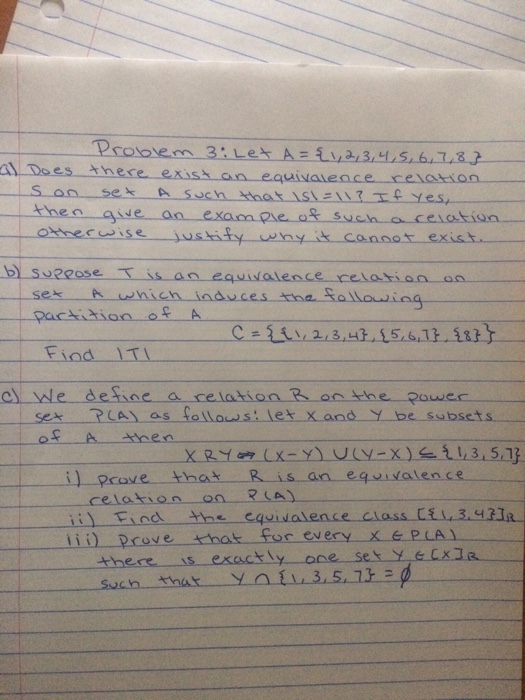 Problem 3: Let A = {1,2,3,4,5,6,7,8}
a) Does there exist an equivalence relation
S on set A such that |S|=11? If yes,
then give an example of such a relation
otherwise justify why it cannot exist.
b) suppose T is an equivalence relation on
set A which induces the following
partition of A
C = {{1,2,3,4}, {5,6,7}, {8}}
Find |T|
c) We define a relation R on the power
set P(A) as follows: let X and Y be subsets
of A then
X R Y ⇔ (X-Y) ∪ (Y-X) ⊆ {1,3,5,7}
i) prove that R is an equivalence
relation on P(A)
ii) Find the equivalence class [{1,3,4}]R
iii) prove that for every X ∈ P(A)
there is exactly one set Y ∈ [X]R
such that Y ∩ {1,3,5,7} = ∅